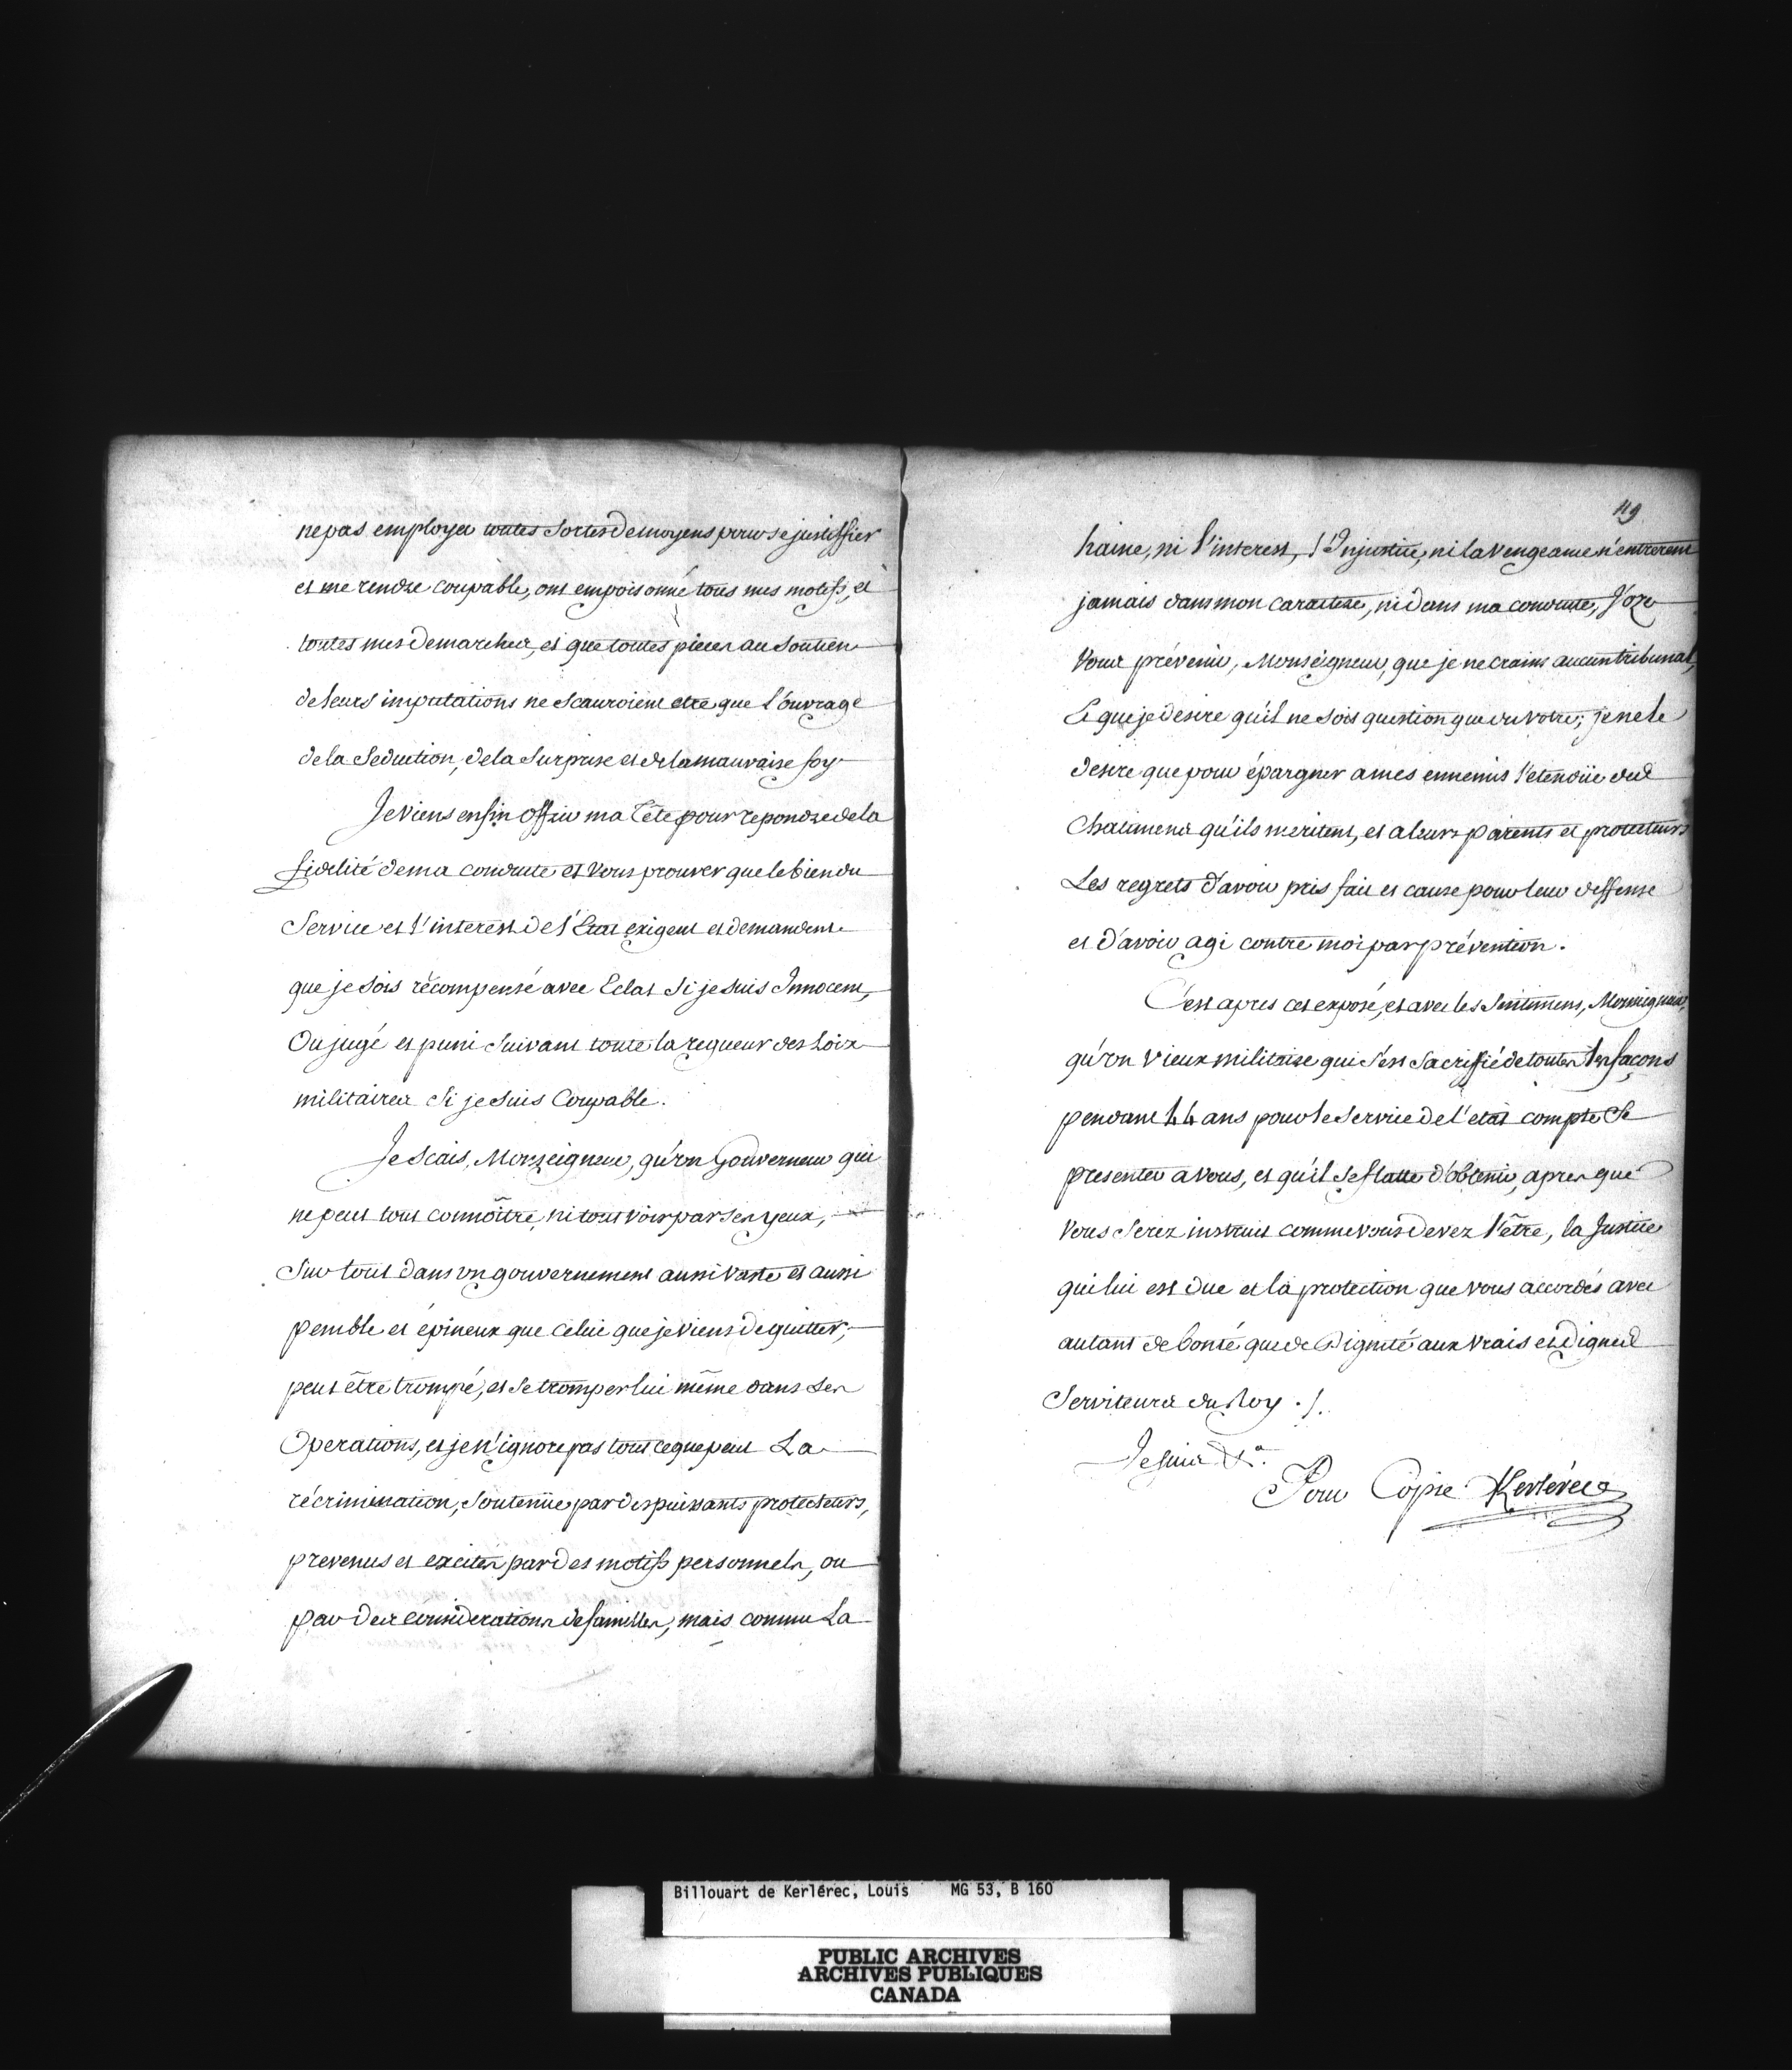 ne pas employer toutes Sortes de moyens pour se justiffier
et me rendre coupable, ont empoisonné tous mes motifs, et
toutes mes demarches, et que toutes pieces au Soutien
de leurs imputations ne Scauroient etre que l'ouvrage
de la Seduction, de la Surprise et de la mauvaise foy.
Je viens enfin offrir ma Tête pour repondre de la
fidelité de ma conduite et vous prouver que le bien du
Service et l'interest de l'Etat exigent et demandent
que je sois récompensé avec Eclat Si je suis Innocent,
Ou jugé et puni Suivant toute la regueur des Loix
militaires Si je suis Coupable.
Je Scais, Monseigneur, qu'un Gouverneur qui
ne peut tout connoître, ni tout voir par Ses yeux,
Sur tout dans un gouvernement aussi vaste et aussi
penible et épineux que celui que je viens de quitter,
peut être trompé, et Se tromper lui même dans Ses
Operations, et je n'ignore pas tout ce que peut La
récrimination, Soutenüe par des puissants protecteurs,
prevenus et excités par des motifs personnels, ou
par des considerations de familles, mais comme La
49
haine, ni l'interest, l'Injustice, ni la vengeance n'entrerent
jamais dans mon caractere, ni dans ma conduite, J'oze
vous prévenir, Monseigneur, que je ne crains aucun tribunal,
Et que je desire qu'il ne Sois question que du votre; je ne le
desire que pour épargner a mes ennemis l'etendüe des
Chatimens qu'ils meritent, et a leurs parents et protecteurs
Les regrets d'avoir pris fait et cause pour leur deffense
et d'avoir agi contre moi par prévention.
C'est apres cet exposé, et avec les Sentimens, Monseigneur,
qu'un vieux militaire qui s'est Sacriffié de toutes les façons
pendant 44 ans pour le Service de l'etat compte Se
presenter a vous, et qu'il Se flatte d'obtenir, apres que
vous Serez instruit comme vous devez l'être, la Justice
qui lui est due et la protection que vous accordés avec
autant de bonté que de Dignité aux vrais et Dignes
Serviteurs du Roy ./.
Je suis &a.
Pour Copie Kerlérec
Billouart de Kerlérec, Louis MG 53, B 160
PUBLIC ARCHIVES
ARCHIVES PUBLIQUES
CANADA